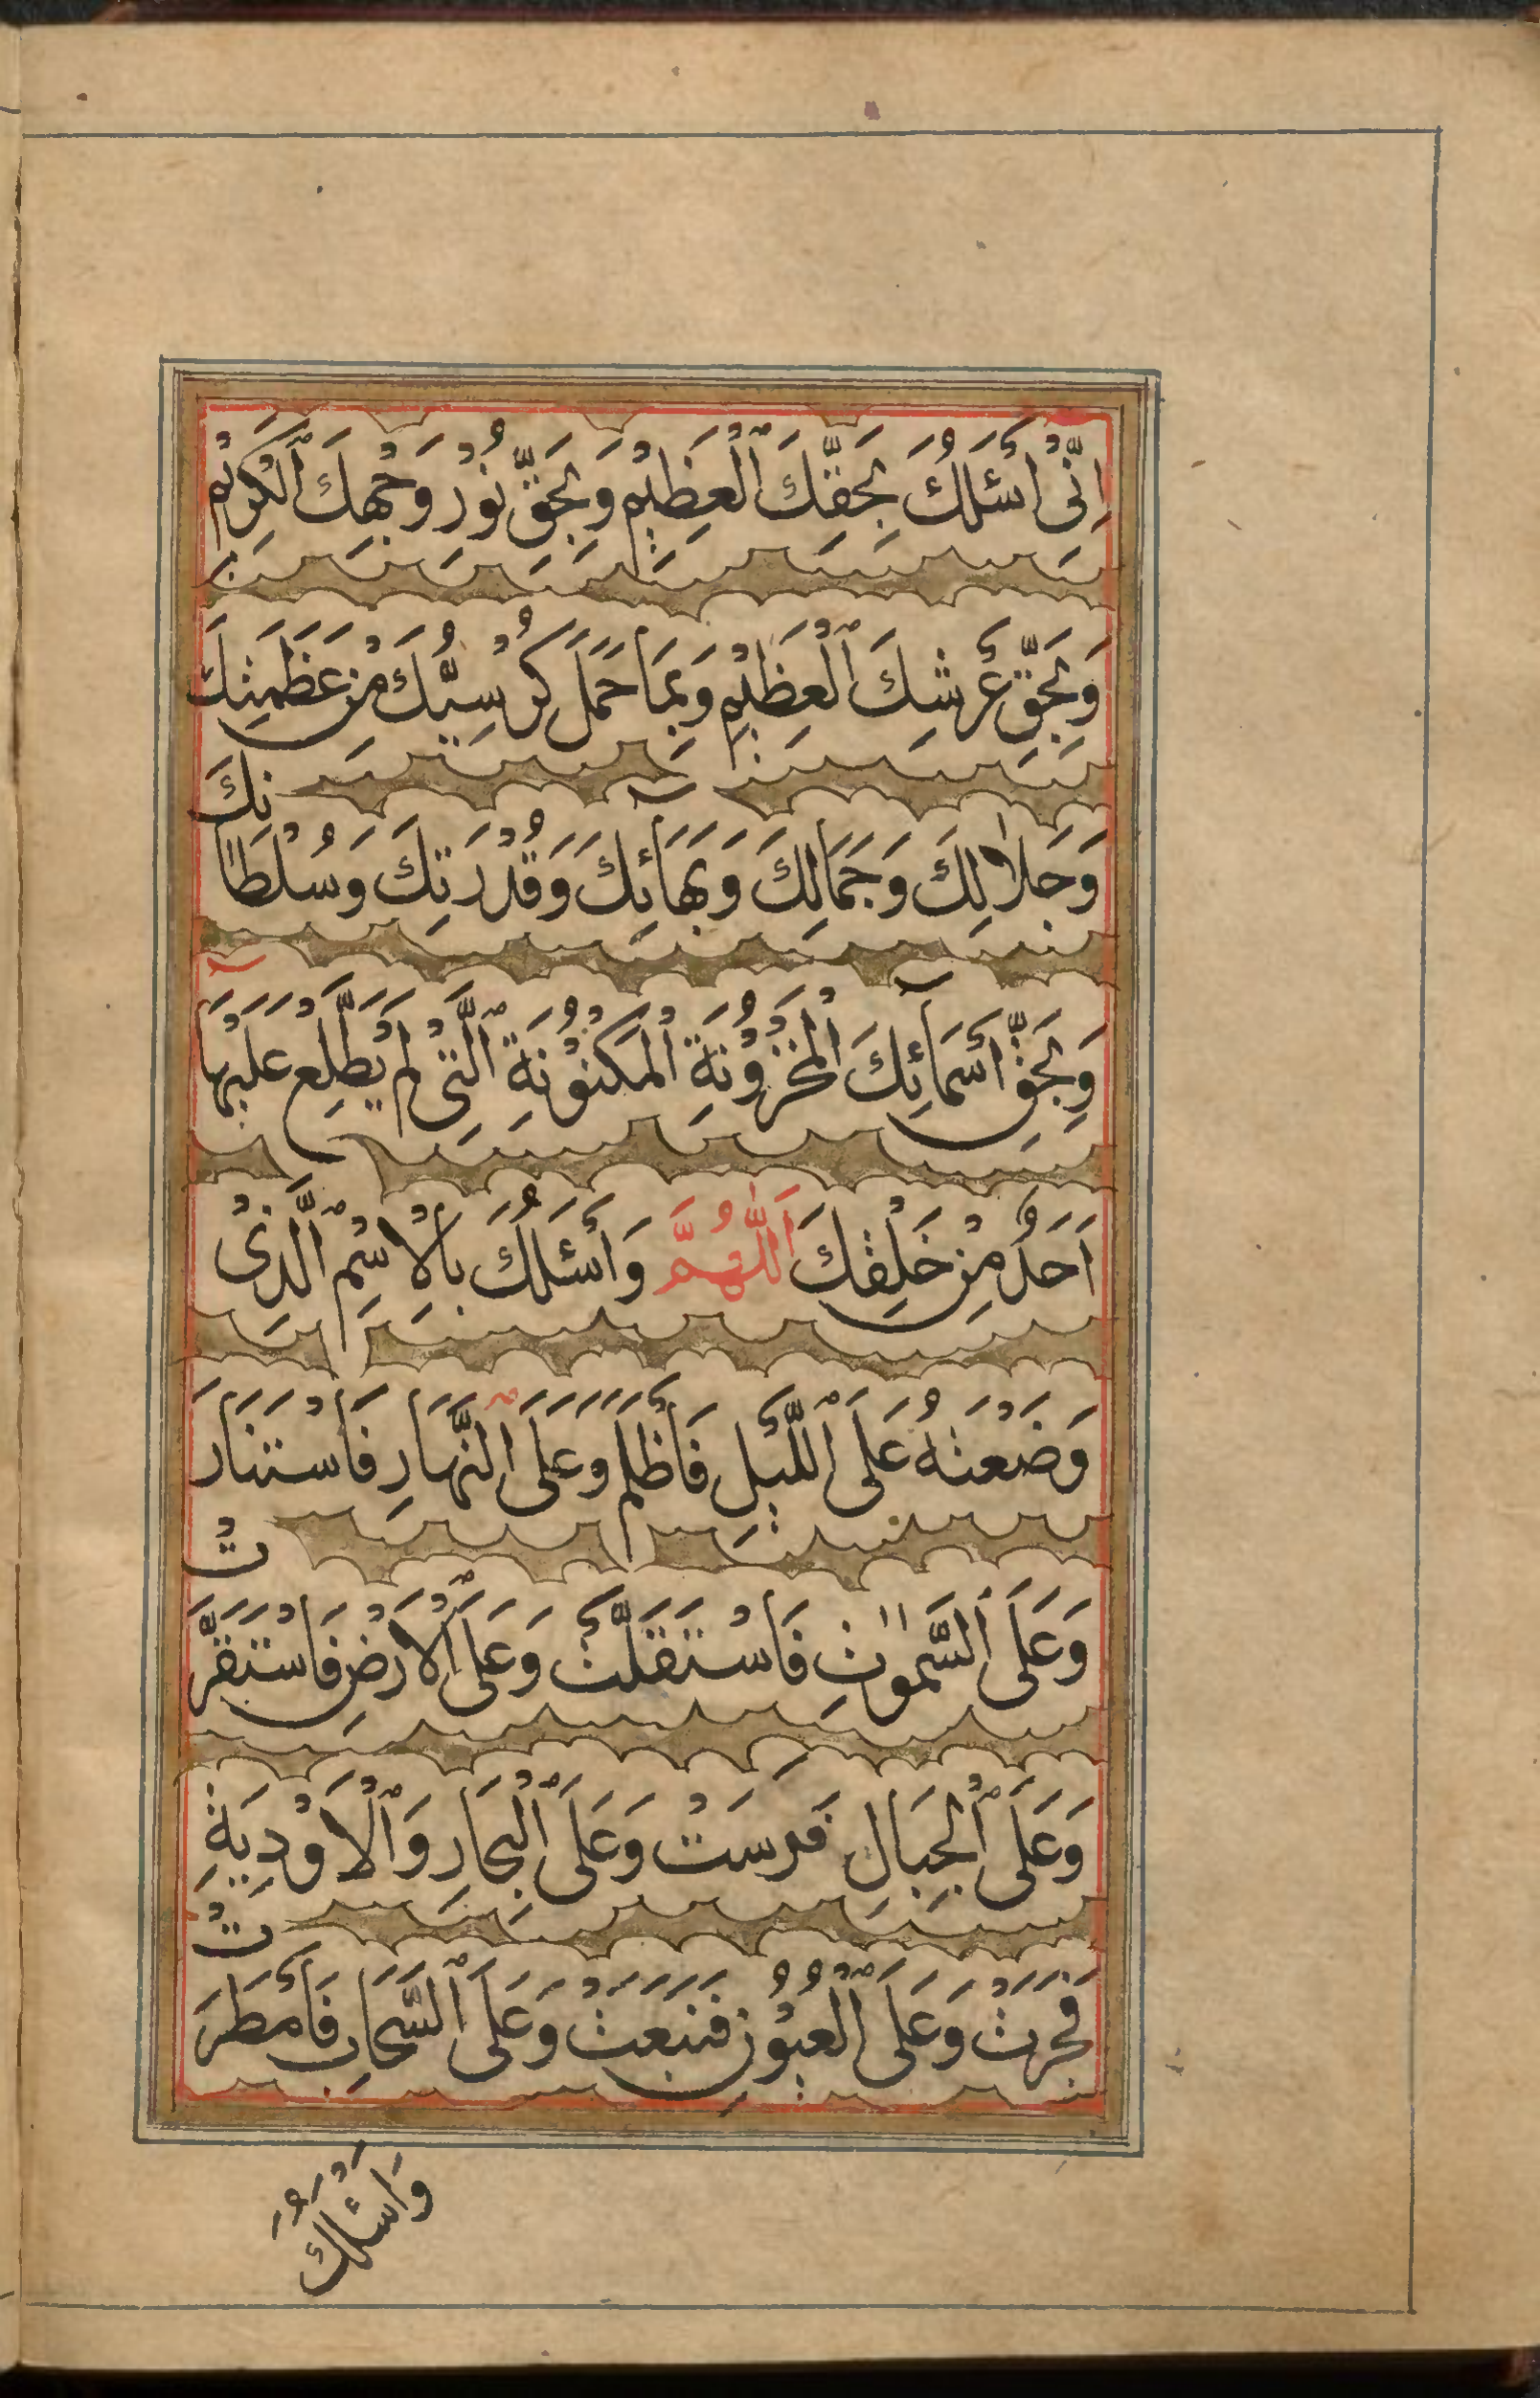 اِنِّىْ اَسْئَلُكَ بِحَقِّكَ الْعَظِيْمِ وَبِحَقِّ نُوْرِ وَجْهِكَ الْكَرِيْمِ
وَبِحَقِّ عَرْشِكَ الْعَظِيْمِ وَبِمَا حَمَلَ كُرْسِيُّكَ مِنْ عَظَمَتِكَ
وَجَلَالِكَ وَجَمَالِكَ وَبَهَآئِكَ وَقُدْرَتِكَ وَسُلْطَانِكَ
وَبِحَقِّ اَسْمَآئِكَ الْمَخْزُوْنَةِ الْمَكْنُوْنَةِ الَّتِىْ لَمْ يَطَّلِعْ عَلَيْهَا
اَحَدٌ مِنْ خَلْقِكَ اَللّٰهُمَّ وَاَسْئَلُكَ بِالْاِسْمِ الَّذِىْ
وَضَعْتَهُ عَلَى اللَّيْلِ فَاَظْلَمَ وَعَلَى النَّهَارِ فَاسْتَنَارَ
وَعَلَى السَّمٰوٰتِ فَاسْتَقَلَّتْ وَعَلَى الْاَرْضِ فَاسْتَقَرَّتْ
وَعَلَى الْجِبَالِ فَرَسَتْ وَعَلَى الْبِحَارِ وَالْاَوْدِيَةِ
فَجَرَتْ وَعَلَى الْعُيُوْنِ فَنَبَعَتْ وَعَلَى السَّحَابِ فَاَمْطَرَتْ
وَاَسْئَلُكَ